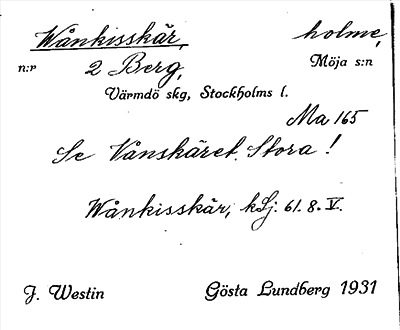 Wånkisskär, holme,
n:r 2 Berg, Möja s:n
Värmdö skg, Stockholms l.
Ma 165
Se Vånskäret, Stora!
Wånkisskär, kSj. 61.8.V.
J. Westin Gösta Lundberg 1931